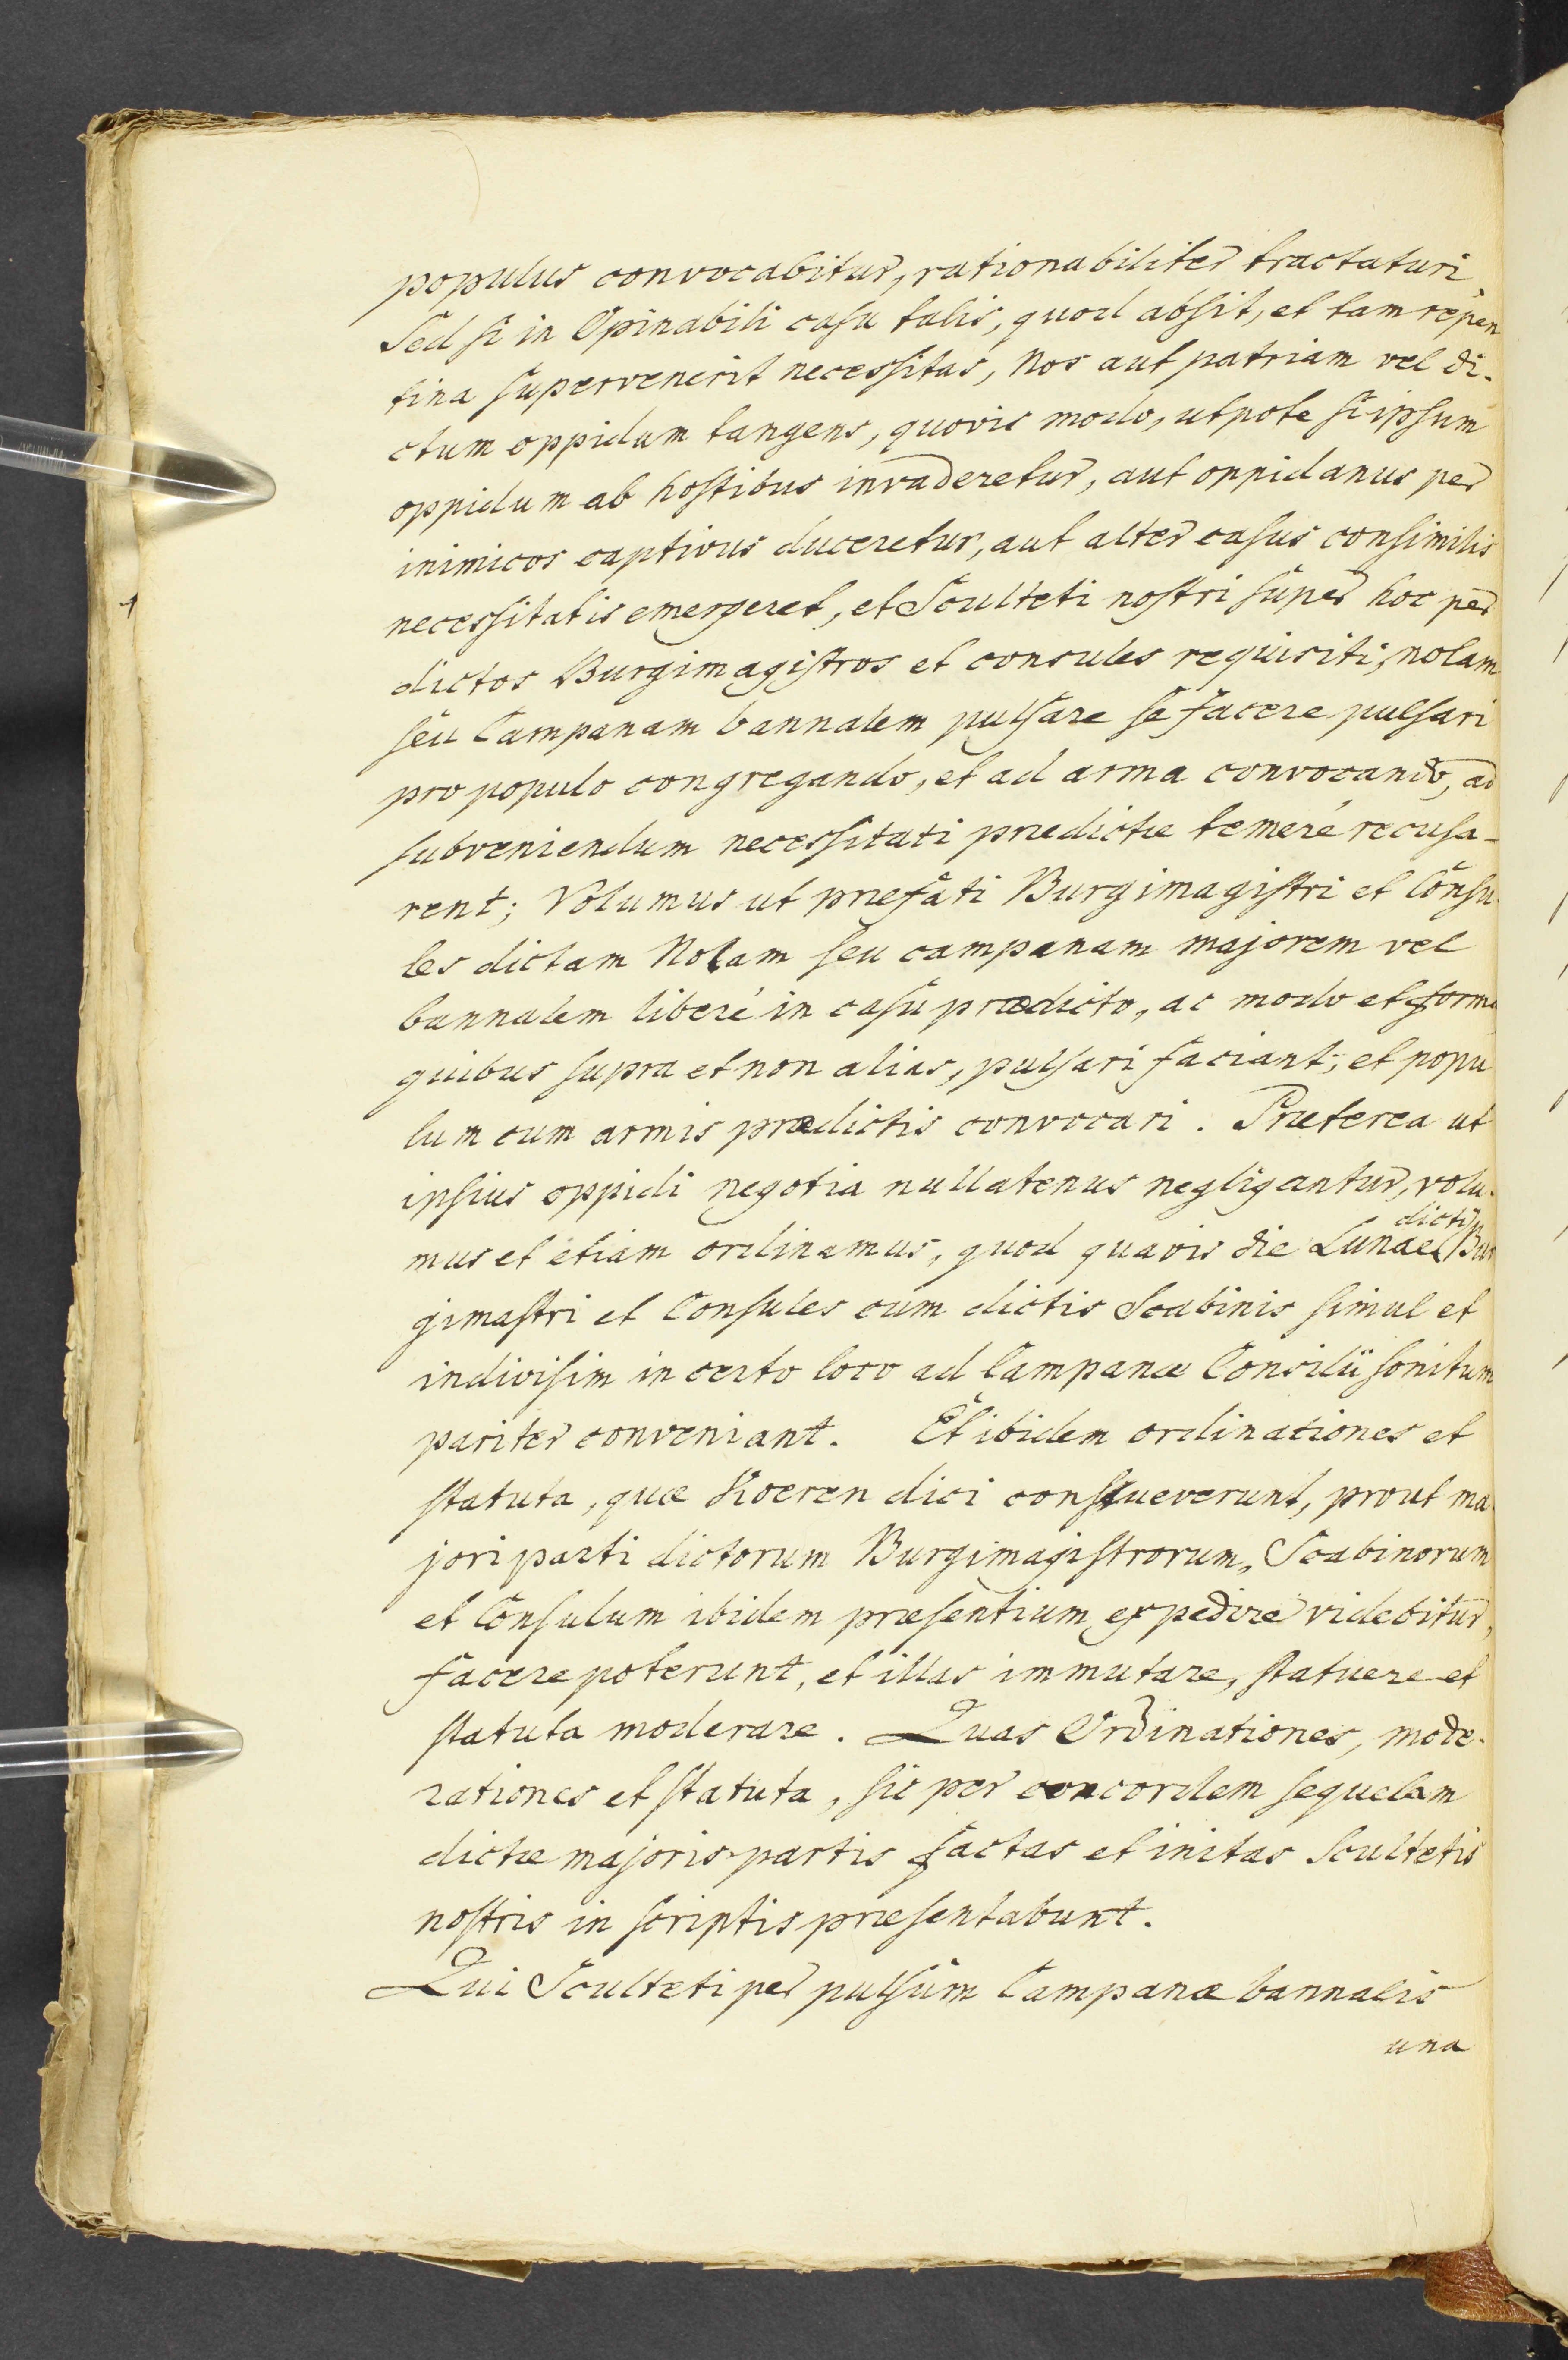 populus convocabitur, rationabiliter tractaturi
Sed si in Opinabili casu talis, quod absit, et tam repen
tina supervenerit necessitas, Nos aut patriam vel di-
ctum oppidum tangens, quovis modo, utpote si ipsum
oppidum ab hostibus invaderetur, aut oppidanus per
inimicos captivus duceretur, aut alter casus consimilis
necessitatis emergeret, et Sculteti nostri super hoc per
dictos Burgimagistros et consules requisiti, nolam
seu Campanam bannalem pulsare se facere pulsari
pro populo congregando, et ad arma convocando, ad
subveniendum necessitati prædictæ temeré recusa-
rent; Volumus ut præfati Burgimagistri et Consu-
les dictam Nolam seu campanam majorem vel
bannalem liberé in casu prædicto, ac modo et forma
quibus supra et non alias, pulsari faciant; et popu
lum cum armis prædictis convocari. Præterea ut
ipsius oppidi negotia nullatenus negligantur, volu-
mus et etiam ordinamus, quod quavis die Lunae dicti Bur
gimastri et Consules cum dictis Scabinis simul et
indivisim in certo loco ad Campanæ Consilii sonitum
pariter conveniant. Et ibidem ordinationes et
statuta, quæ Koeren dici consueverunt, prout ma-
jori parti dictorum Burgimagistrorum, Scabinorum
et Consulum ibidem præsentium expedire videbitur,
facere poterunt, et illas immutare, statuere et
statuta moderare. Quas Ordinationes, mode-
rationes et statuta, sic per concordem sequelam
dictæ majoris partis factas et initas Scultetis
nostris in scriptis præsentabunt.
Qui Sculteti per pulsum Campanæ bannalis
una